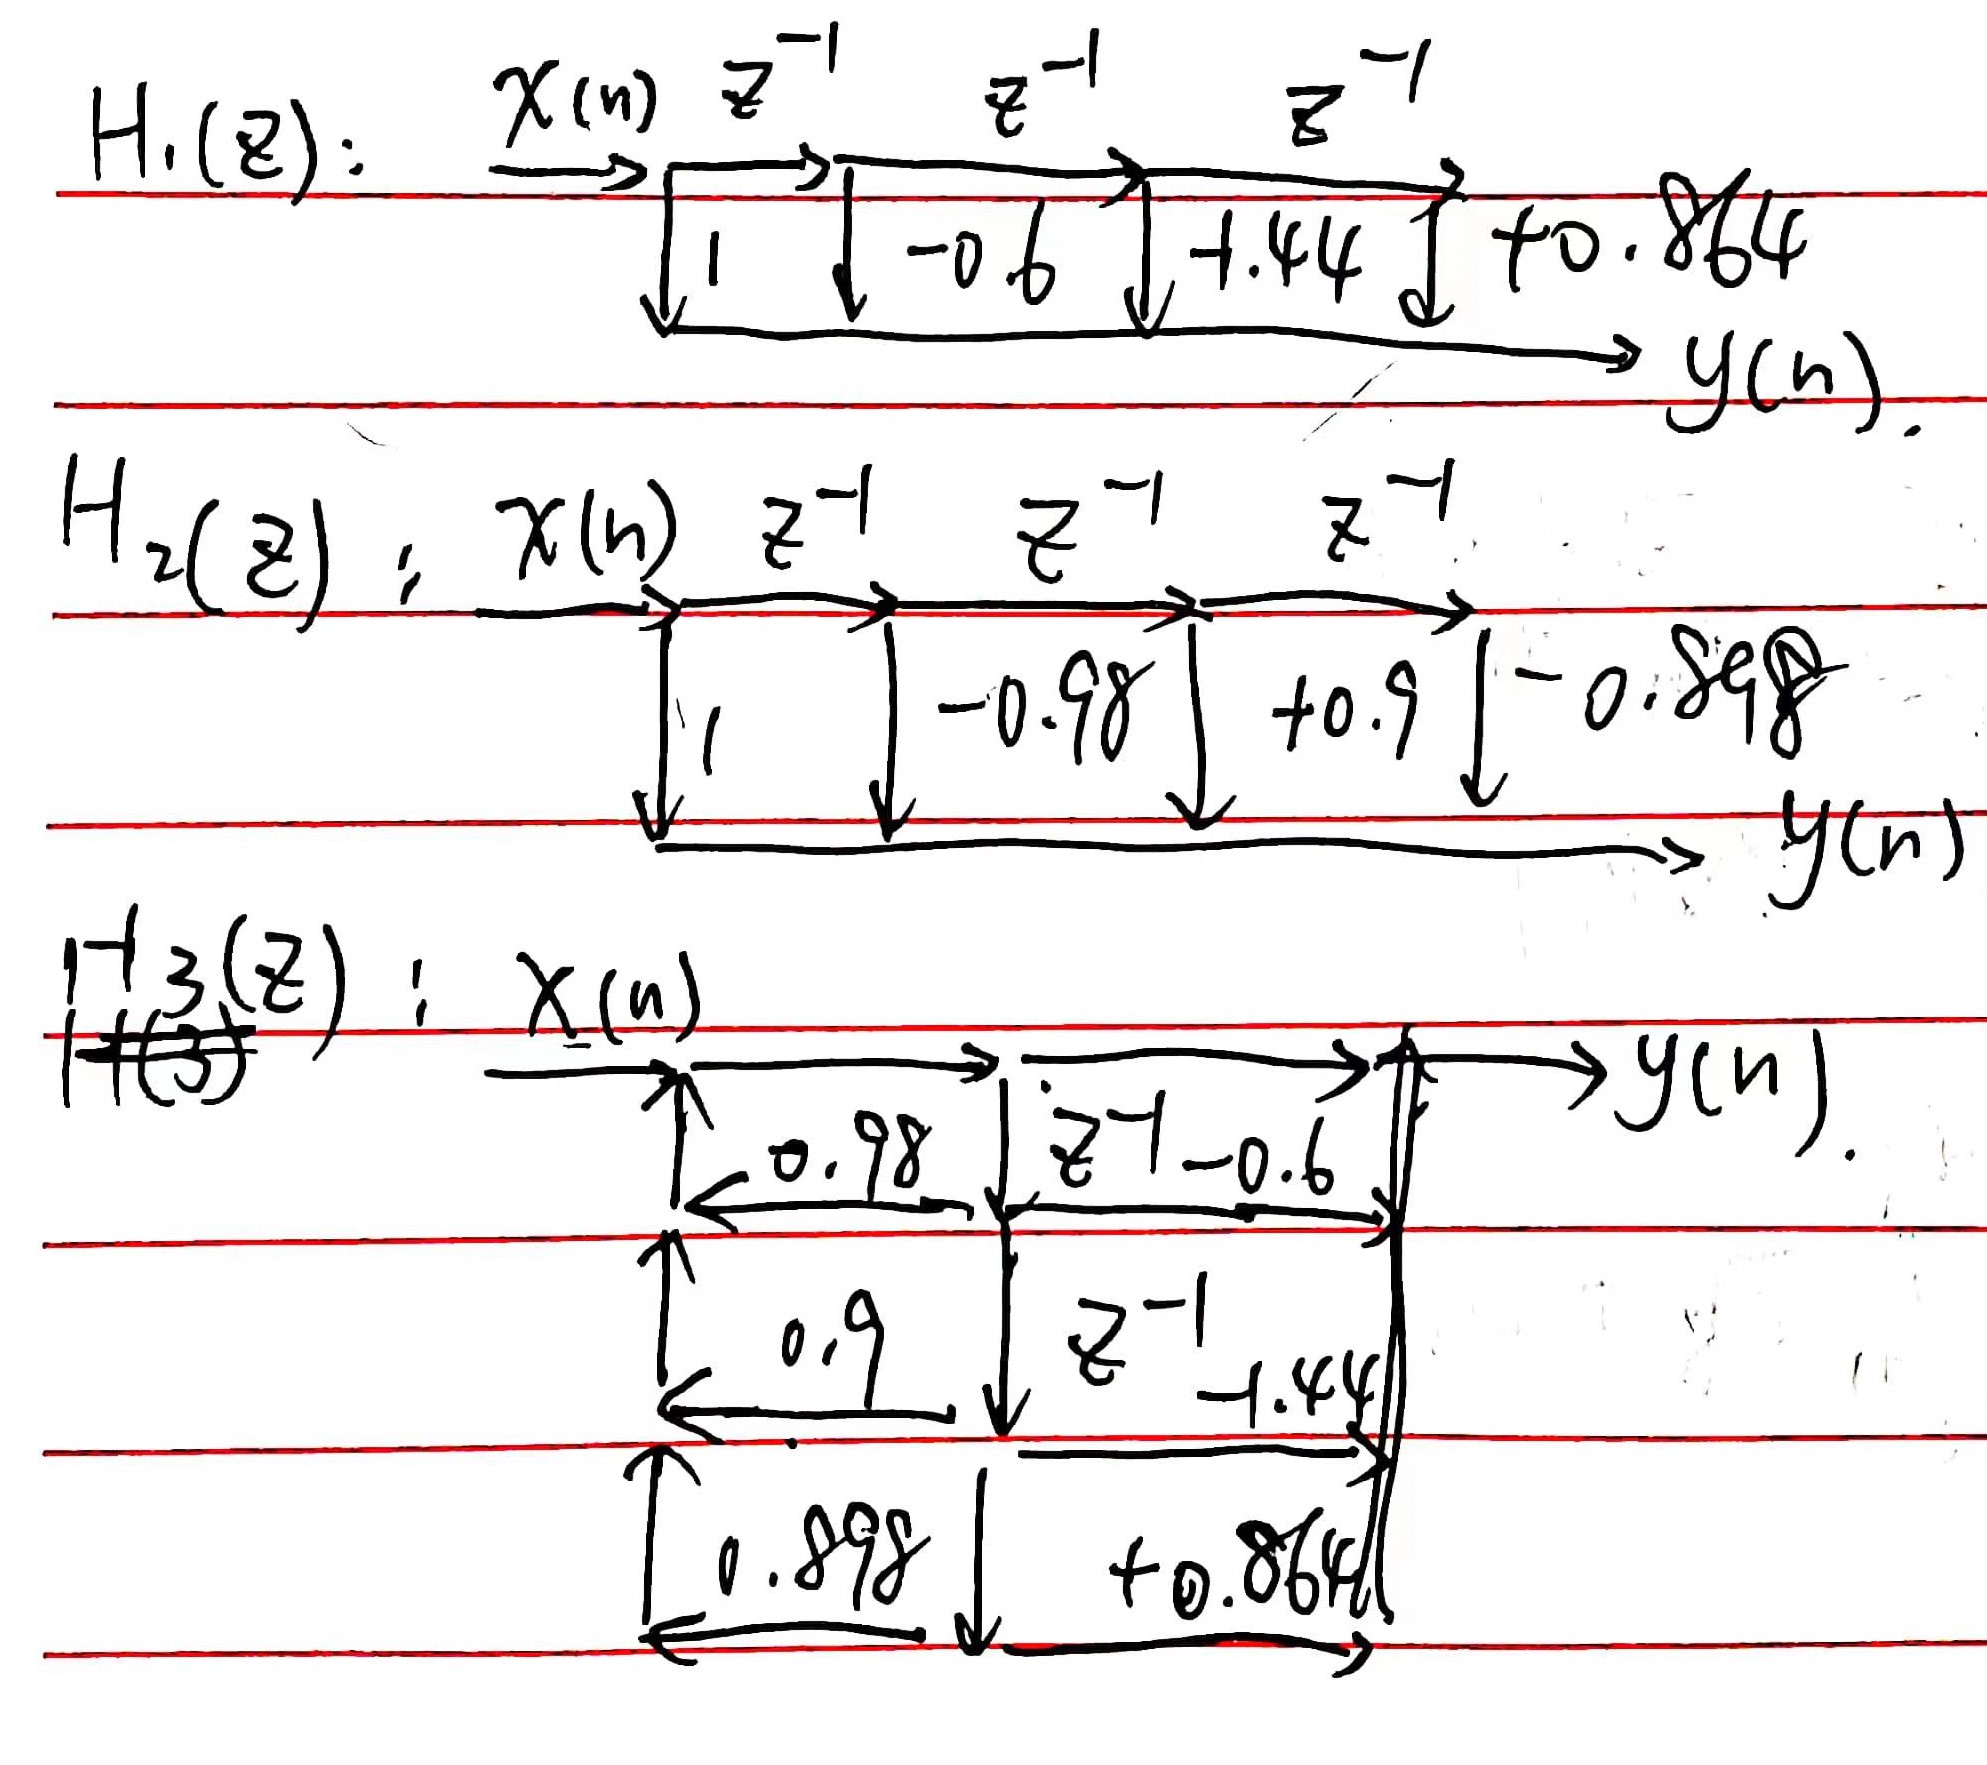 H₁(z): x(n) z⁻¹ z⁻¹ z⁻¹
1 -0.6 -1.44 +0.864
y(n).
H₂(z): x(n) z⁻¹ z⁻¹ z⁻¹
1 -0.98 +0.9 -0.898
y(n)
H₃(z): x(n)
H(3) y(n).
0.98 z⁻¹ -0.6
0.9 z⁻¹ -1.44
0.898 +0.864